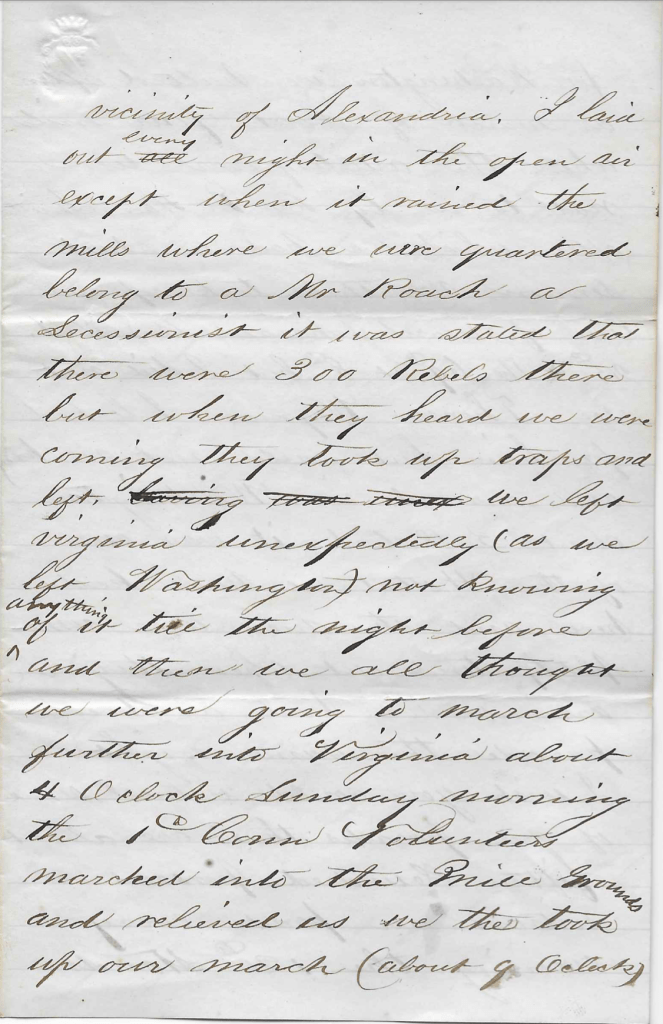 vicinity of Alexandria. I laid
out all every night in the open air
except when it rained the
mills where we were quartered
belong to a Mr Roach a
Secessionist it was stated that
there were 300 Rebels there
but when they heard we were
coming they took up traps and
left. having was we left
virginia unexpectedly (as we
left Washington) not knowing
anything
of it till the night before
and then we all thought
we were going to march
further into Virginia about
4 O clock Sunday morning
the 1st Conn Volunteers
marched into the Mill Grounds
and relieved us we the took
up our march (about 9 Oclock)